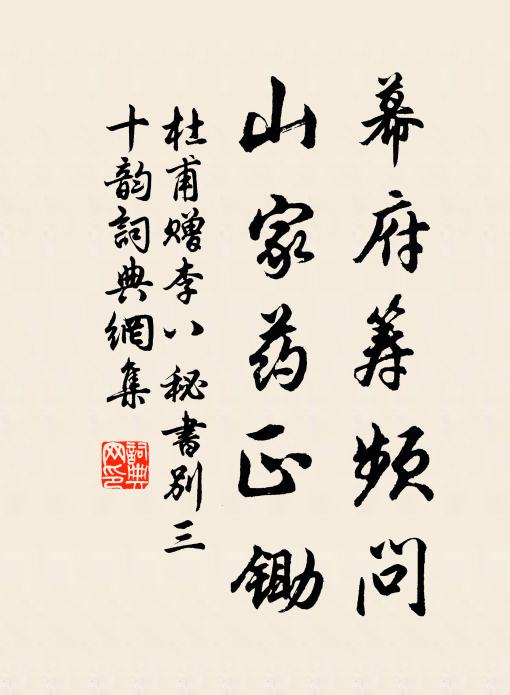 幕府筹频问
山家药正锄
杜甫赠李八秘书别三
十韵词典網集
詞典网印